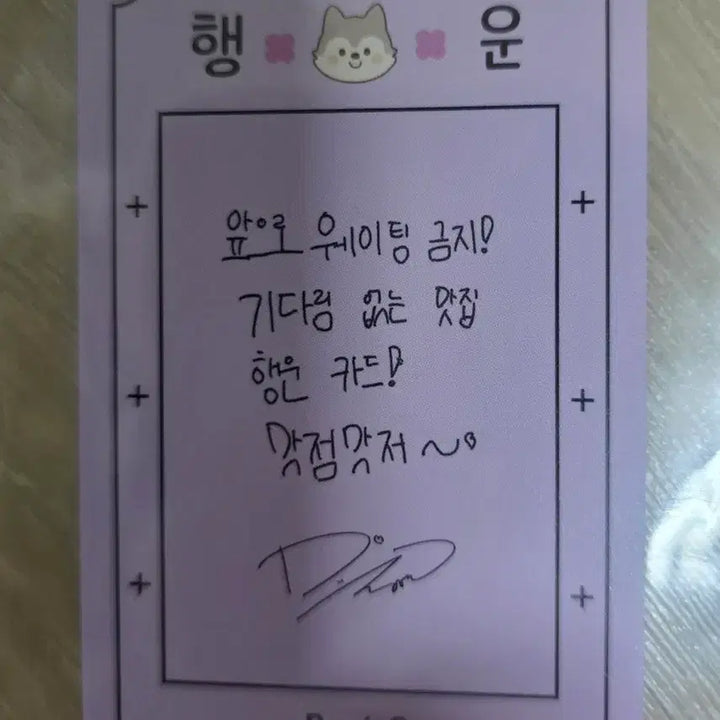 행 운
앞으로 웨이팅 금지!
기다림 없는 맛집
행운 카드!
맛점맛저~